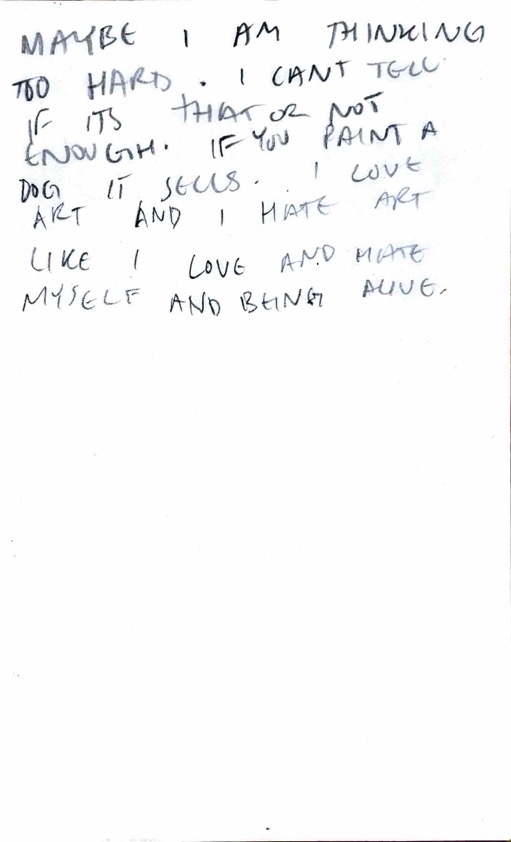 MAYBE I AM THINKING
TOO HARD. I CANT TELL
IF ITS THAT OR NOT
ENOUGH. IF YOU PAINT A
DOG IT SELLS. I LOVE
ART AND I HATE ART
LIKE I LOVE AND HATE
MYSELF AND BEING ALIVE.